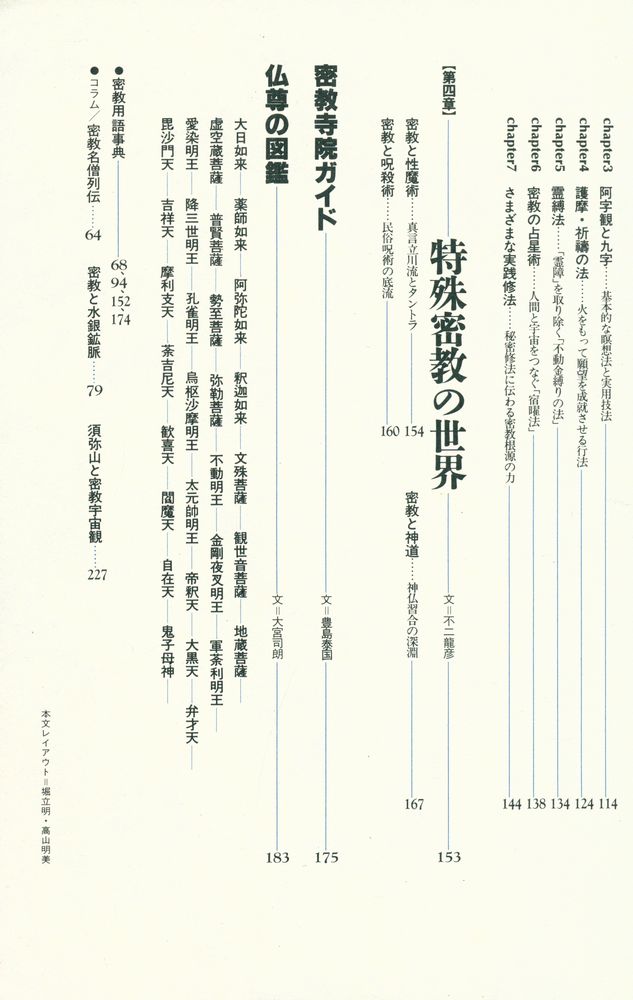 chapter3 阿字観と九字……基本的な瞑想法と実用技法 114
chapter4 護摩・祈禱の法……火をもって願望を成就させる行法 124
chapter5 霊縛法……「霊障」を取り除く「不動金縛りの法」 134
chapter6 密教の占星術……人間と宇宙をつなぐ「宿曜法」 138
chapter7 さまざまな実践修法……秘密修法に伝わる密教根源の力 144
【第四章】特殊密教の世界 文=不二龍彦 153
密教と性魔術……真言立川流とタントラ 154 密教と神道……神仏習合の深淵 167
密教と呪殺術……民俗呪術の底流 160
密教寺院ガイド 文=豊島泰国 175
仏尊の図鑑 文=大宮司朗 183
大日如来 薬師如来 阿弥陀如来 釈迦如来 文殊菩薩 観世音菩薩 地蔵菩薩
虚空蔵菩薩 普賢菩薩 勢至菩薩 弥勒菩薩 不動明王 金剛夜叉明王 軍荼利明王
愛染明王 降三世明王 孔雀明王 烏枢沙摩明王 太元帥明王 帝釈天 大黒天 弁才天
毘沙門天 吉祥天 摩利支天 荼吉尼天 歓喜天 閻魔天 自在天 鬼子母神
●密教用語事典 68、94、152、174
●コラム/密教名僧列伝……64 密教と水銀鉱脈……79 須弥山と密教宇宙観……227
本文レイアウト=堀立明・高山明美